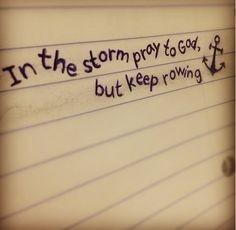 In the storm pray to God,
but keep rowing